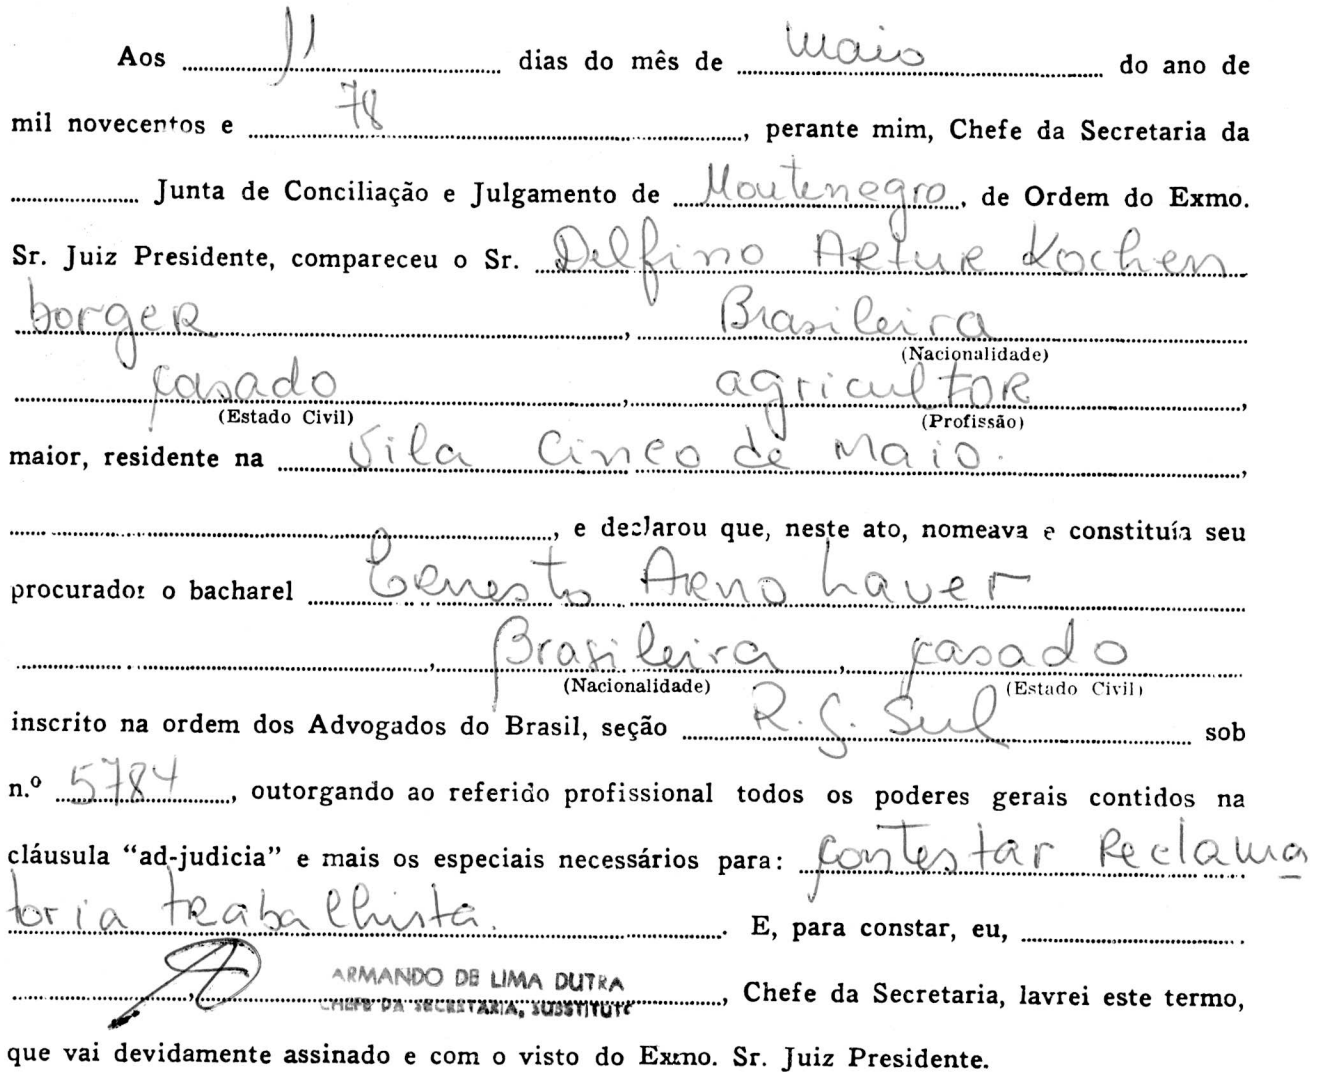 Aos 11 dias do mês de maio do ano de
mil novecentos e 78, perante mim, Chefe da Secretaria da
Junta de Conciliação e Julgamento de Montenegro, de Ordem do Exmo.
Sr. Juiz Presidente, compareceu o Sr. Delfino Artur Kochen
borger, Brasileira
(Nacionalidade)
casado, agricultor,
(Estado Civil) (Profissão)
maior, residente na Vila Cinco de Maio.,
, e declarou que, neste ato, nomeava e constituía seu
procurador o bacharel Ernesto Arno Lauer
, Brasileira, casado
(Nacionalidade) (Estado Civil)
inscrito na ordem dos Advogados do Brasil, seção R. G. Sul sob
n.º 5784, outorgando ao referido profissional todos os poderes gerais contidos na
cláusula “ad-judicia” e mais os especiais necessários para: contestar Reclama
toria trabalhista. E, para constar, eu,
ARMANDO DE LIMA DUTRA
CHEFE DA SECRETARIA, SUBSTITUTO, Chefe da Secretaria, lavrei este termo,
que vai devidamente assinado e com o visto do Exmo. Sr. Juiz Presidente.